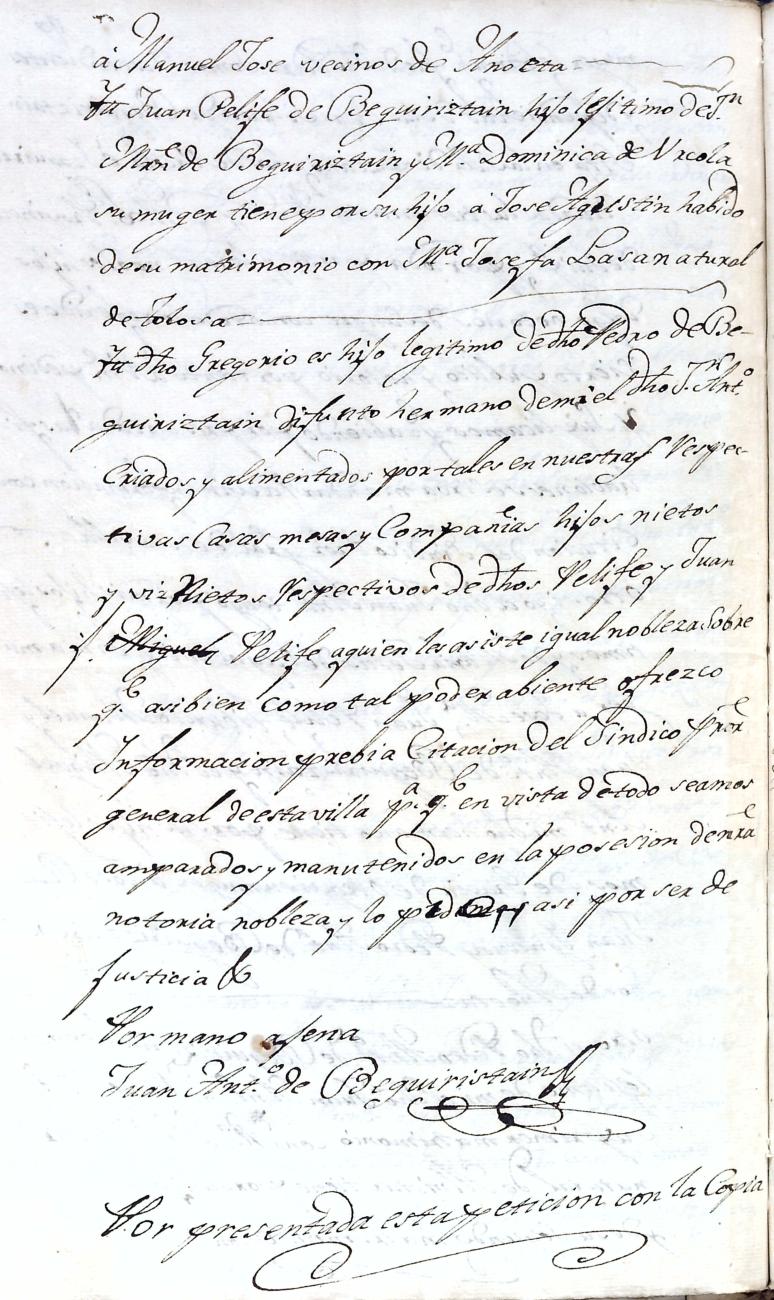 a Manuel Jose vecinos de Anoeta
Ju Juan Pelife de Beguiriztain hijo lejitimo de Jn
Mrn de Beguiriztain y Ma Dominica de Urcola
su muger tiene por su hijo a Jose Agustin habido
de su matrimonio con Ma Josefa Lasa natural
de tolosa
Ju dho Gregorio es hijo legitimo de dho Pedro de Be-
guiriztain difunto hermano de mi el dho Jn Anto
Criados y alimentados por tales en nuestras Respec-
tivas Casas mesas y Compañias hijos nietos
y viz Nietos Respectivos de dhos Pelife y Juan
Miguel Pelife a quien les asiste igual nobleza Sobre
qe asi bien como tal poder abiente ofrezco
Informacion prebia Citacion del Sindico pror
general de esta villa pa qe en vista de todo seamos
amparados y manutenidos en la posesion de nra
notoria nobleza y lo pedimos asi por ser de
Justicia &
Por mano ajena
Juan Anto de Beguiristain
Por presentada esta peticion con la Copia